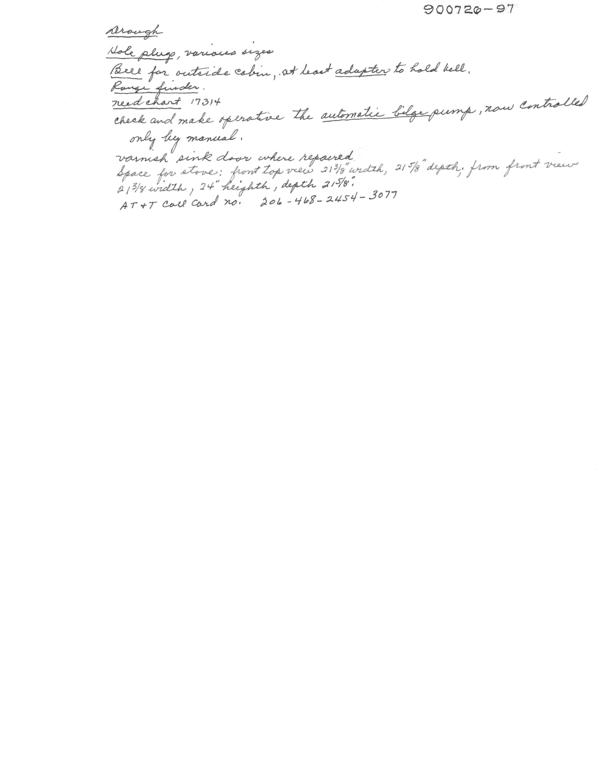 900726-97
Drough
Hole plug, various sizes
Bell for outside cabin, at least adapter to hold bell.
Range finder.
need chart 17314
check and make operative the automatic bilge pump, now controlled
only by manual.
varnish sink door where repaired
Space for stove: front top view 21 3/8" width, 21 5/8" depth; from front view
21 3/8 width, 24" heighth, depth 21 5/8".
AT+T Call Card no. 206-468-2454-3077